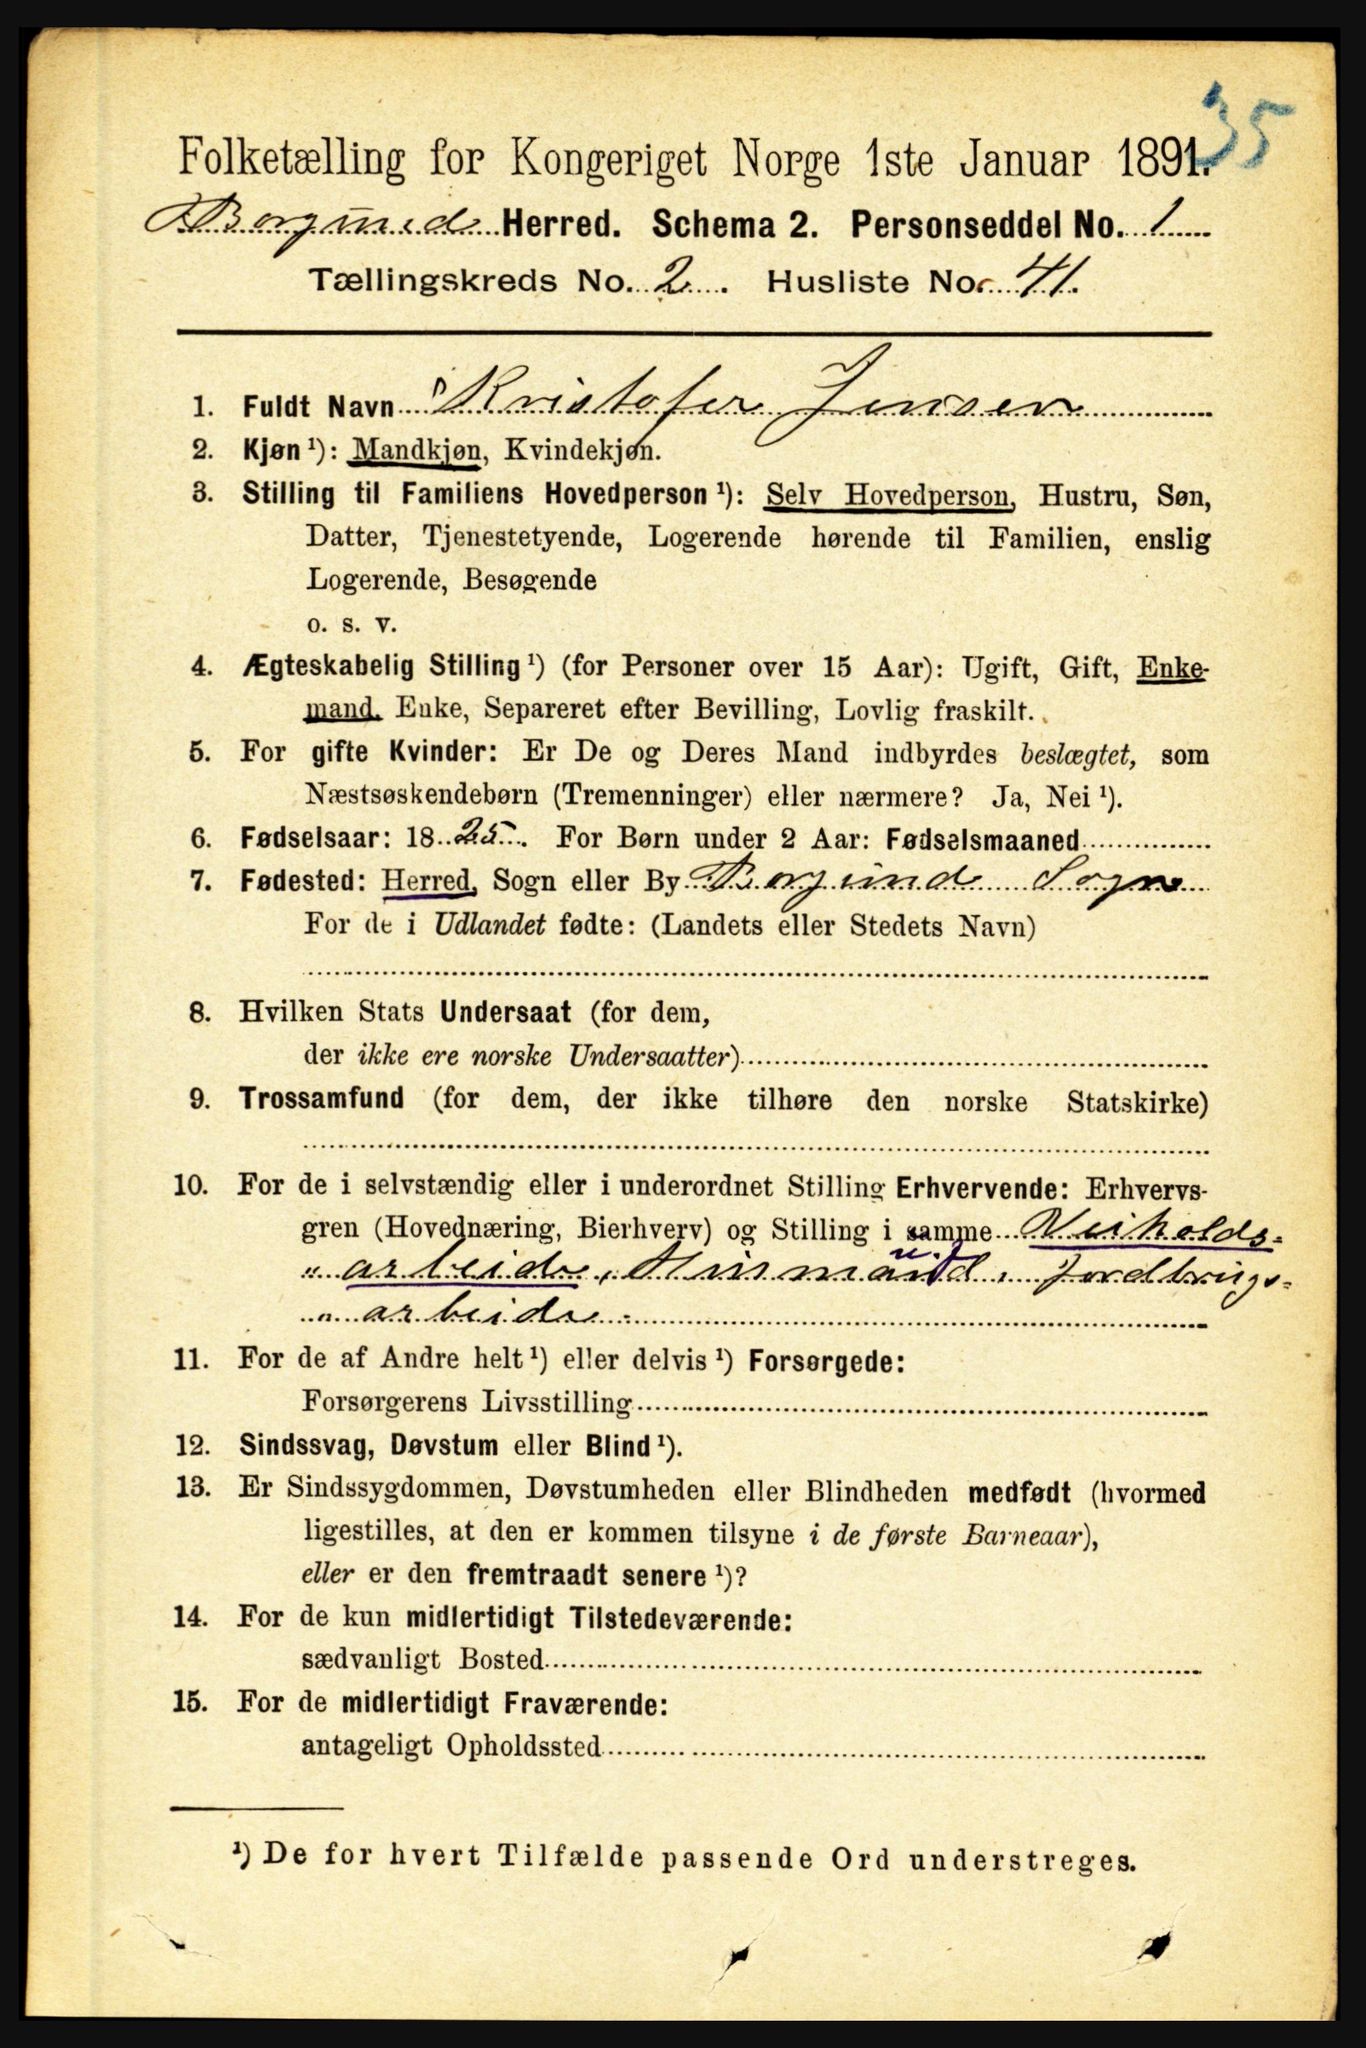 35
Folketælling for Kongeriget Norge 1ste Januar 1891.
Borgund Herred. Schema 2. Personseddel No. 1
Tællingskreds No. 2. Husliste No. 41.
1. Fuldt Navn Kristofer Jensen
2. Kjøn ¹): Mandkjøn, Kvindekjøn.
3. Stilling til Familiens Hovedperson ¹): Selv Hovedperson, Hustru, Søn,
Datter, Tjenestetyende, Logerende hørende til Familien, enslig
Logerende, Besøgende
o. s. v.
4. Ægteskabelig Stilling ¹) (for Personer over 15 Aar): Ugift, Gift, Enke-
mand, Enke, Separeret efter Bevilling, Lovlig fraskilt.
5. For gifte Kvinder: Er De og Deres Mand indbyrdes beslægtet, som
Næstsøskendebørn (Tremenninger) eller nærmere? Ja, Nei ¹).
6. Fødselsaar: 1825. For Børn under 2 Aar: Fødselsmaaned
7. Fødested: Herred, Sogn eller By Borgund Sogn
For de i Udlandet fødte: (Landets eller Stedets Navn)
8. Hvilken Stats Undersaat (for dem,
der ikke ere norske Undersaatter)
9. Trossamfund (for dem, der ikke tilhøre den norske Statskirke)
10. For de i selvstændig eller i underordnet Stilling Erhvervende: Erhvervs-
gren (Hovednæring, Bierhverv) og Stilling i samme Veiholds-
" arbeide, Husmand, Jordbrugs-
" arbeide.
11. For de af Andre helt ¹) eller delvis ¹) Forsørgede:
Forsørgerens Livsstilling
12. Sindssvag, Døvstum eller Blind ¹).
13. Er Sindssygdommen, Døvstumheden eller Blindheden medfødt (hvormed
ligestilles, at den er kommen tilsyne i de første Barneaar),
eller er den fremtraadt senere ¹)?
14. For de kun midlertidigt Tilstedeværende:
sædvanligt Bosted
15. For de midlertidigt Fraværende:
antageligt Opholdssted
¹) De for hvert Tilfælde passende Ord understreges.